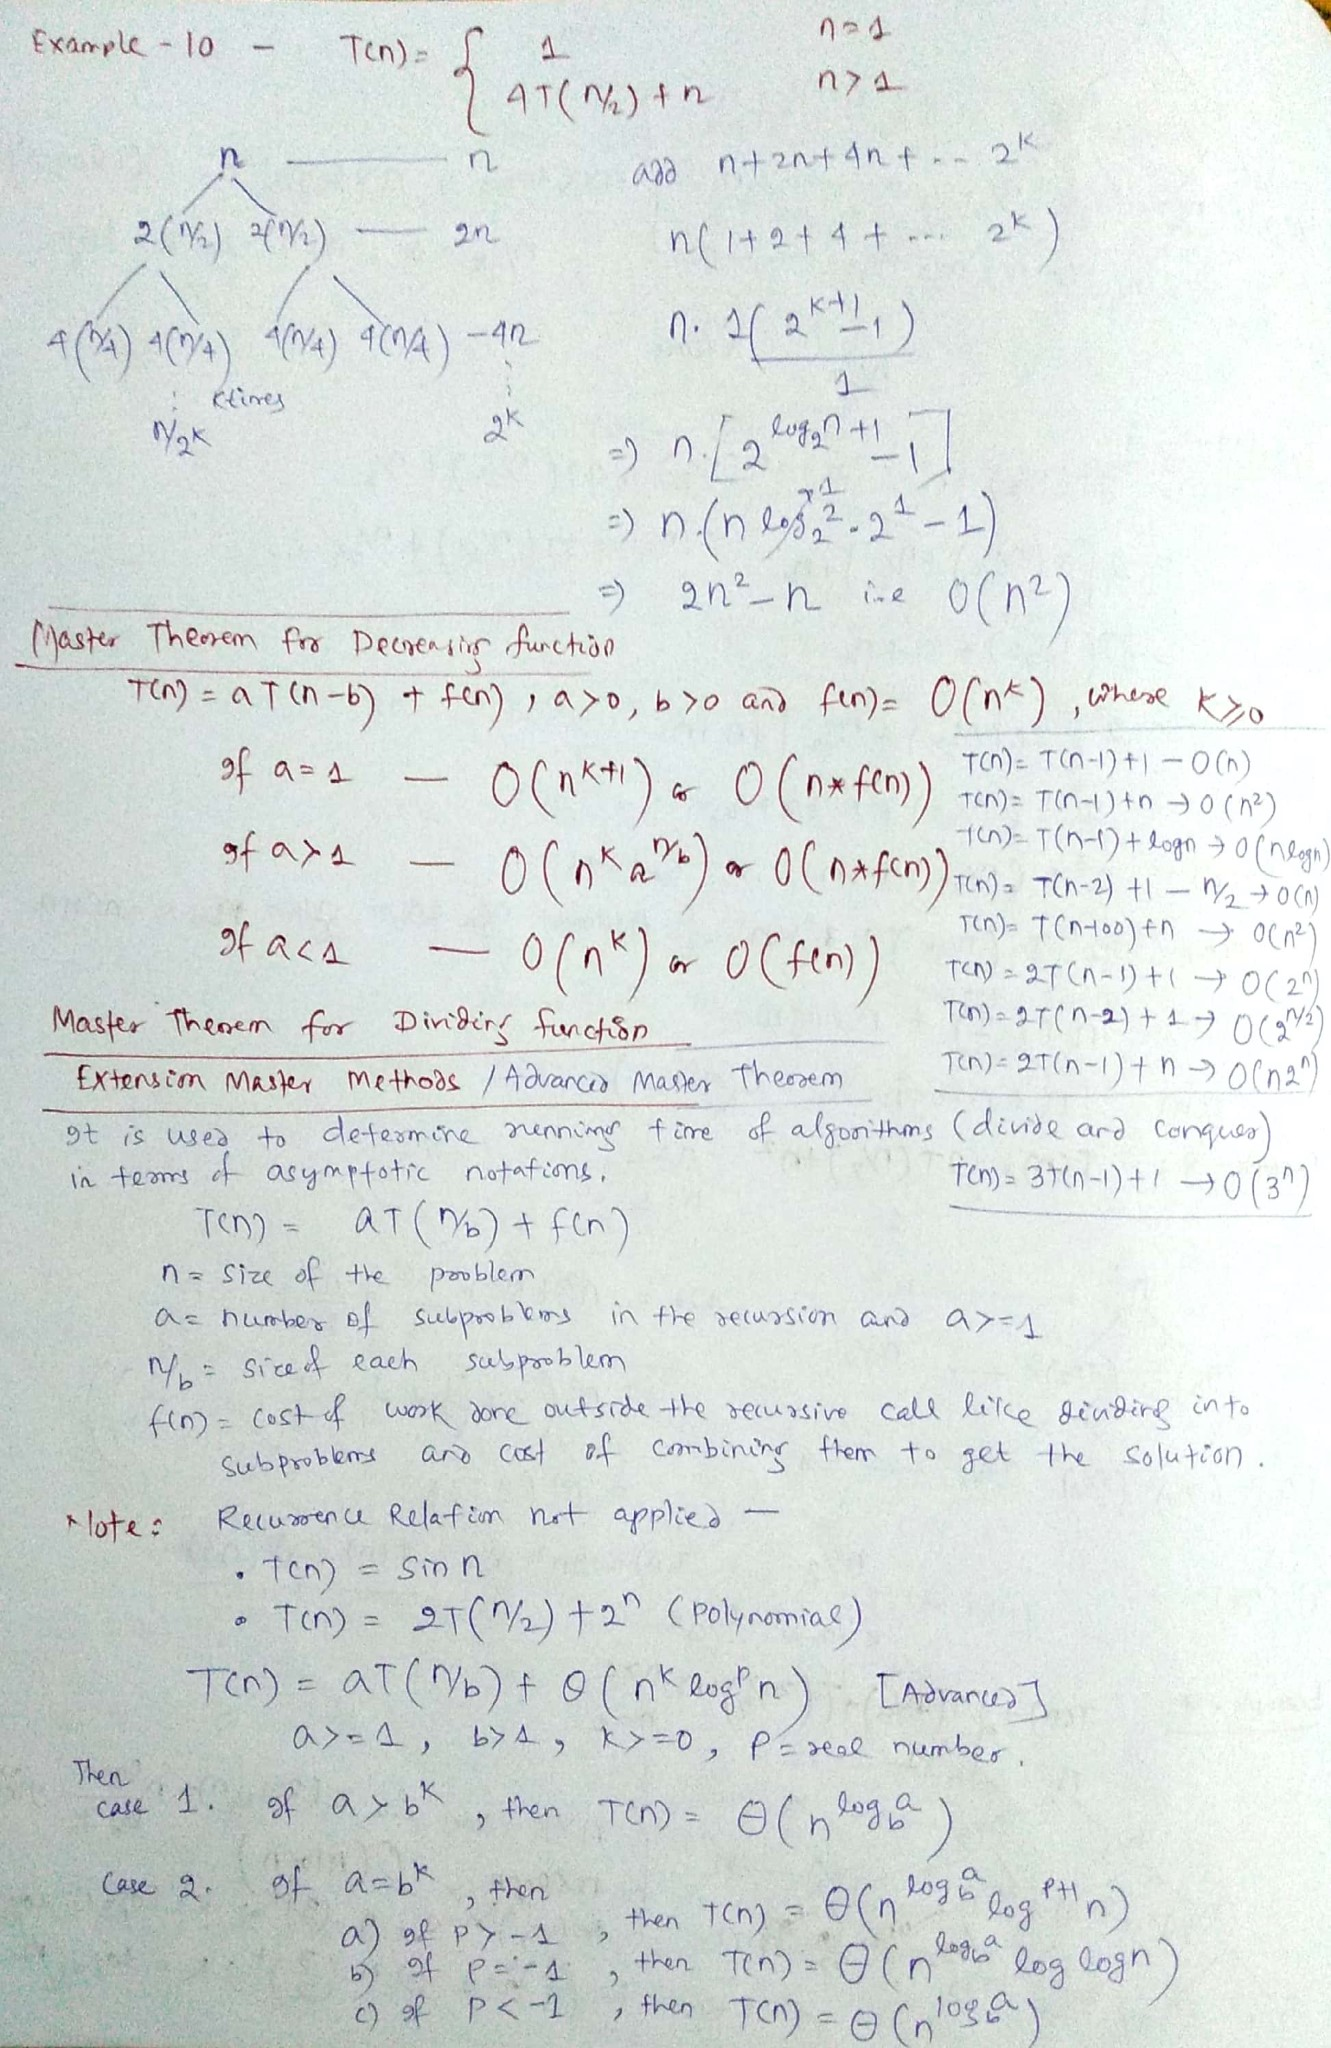 Example - 10 - T(n) = { 1 n=1
4T(n/2) + n n>1
n — n add n+2n+4n+ .. 2^k
2(n/2) 2(n/2) — 2n n(1+2+4+ ... 2^k)
4(n/4) 4(n/4) 4(n/4) 4(n/4) - 4n n. 1(2^(k+1) - 1)
⋮ ktimes ⋮ 1
n/2^k 2^k => n.[2^(log_2 n + 1) - 1]
=> n.(n log_2 2 . 2^1 - 1)
=> 2n² - n i.e O(n²)
Master Theorem for Decreasing function
T(n) = aT(n-b) + f(n), a>0, b>0 and f(n) = O(n^k), where k≥0
If a=1 — O(n^(k+1)) or O(n*f(n))
If a>1 — O(n^k a^(n/b)) or O(n*f(n))
If a<1 — O(n^k) or O(f(n))
T(n) = T(n-1)+1 - O(n)
T(n) = T(n-1)+n → O(n²)
T(n) = T(n-1)+logn → O(nlogn)
T(n) = T(n-2)+1 - n/2 → O(n)
T(n) = T(n-100)+n → O(n²)
T(n) = 2T(n-1)+1 → O(2^n)
T(n) = 2T(n-2)+1 → O(2^(n/2))
T(n) = 2T(n-1)+n → O(n2^n)
T(n) = 3T(n-1)+1 → O(3^n)
Master Theorem for Dividing function
Extension Master Methods / Advanced Master Theorem
It is used to determine running time of algorithms (divide and conquer)
in terms of asymptotic notations.
T(n) = aT(n/b) + f(n)
n = size of the problem
a = number of subproblems in the recursion and a>=1
n/b = size of each subproblem
f(n) = cost of work done outside the recursive call like dividing into
subproblems and cost of combining them to get the solution.
Note: Recurrence Relation not applied —
• T(n) = sin n
• T(n) = 2T(n/2) + 2^n (Polynomial)
T(n) = aT(n/b) + θ(n^k log^p n) [Advanced]
a>=1, b>1, k>=0, P = real number.
Then
case 1. If a > b^k, then T(n) = θ(n^(log_b a))
Case 2. If a = b^k, then
a) If P > -1, then T(n) = θ(n^(log_b a) log^(P+1) n)
b) If P = -1, then T(n) = θ(n^(log_b a) log logn)
c) If P < -1, then T(n) = θ(n^(log_b a))